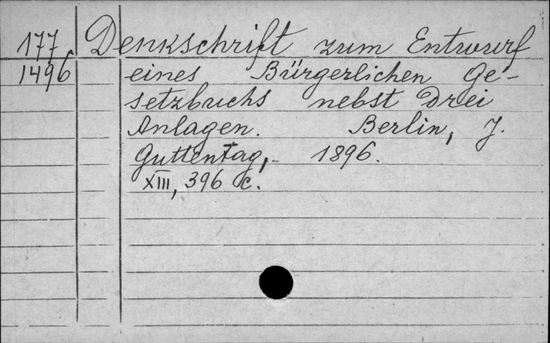 177 Denkschrift zum Entwurf
1496 eines Bürgerlichen Ge-
setzbuchs nebst Drei
Anlagen. Berlin, J.
Guttentag, 1896.
XIII, 396 c.